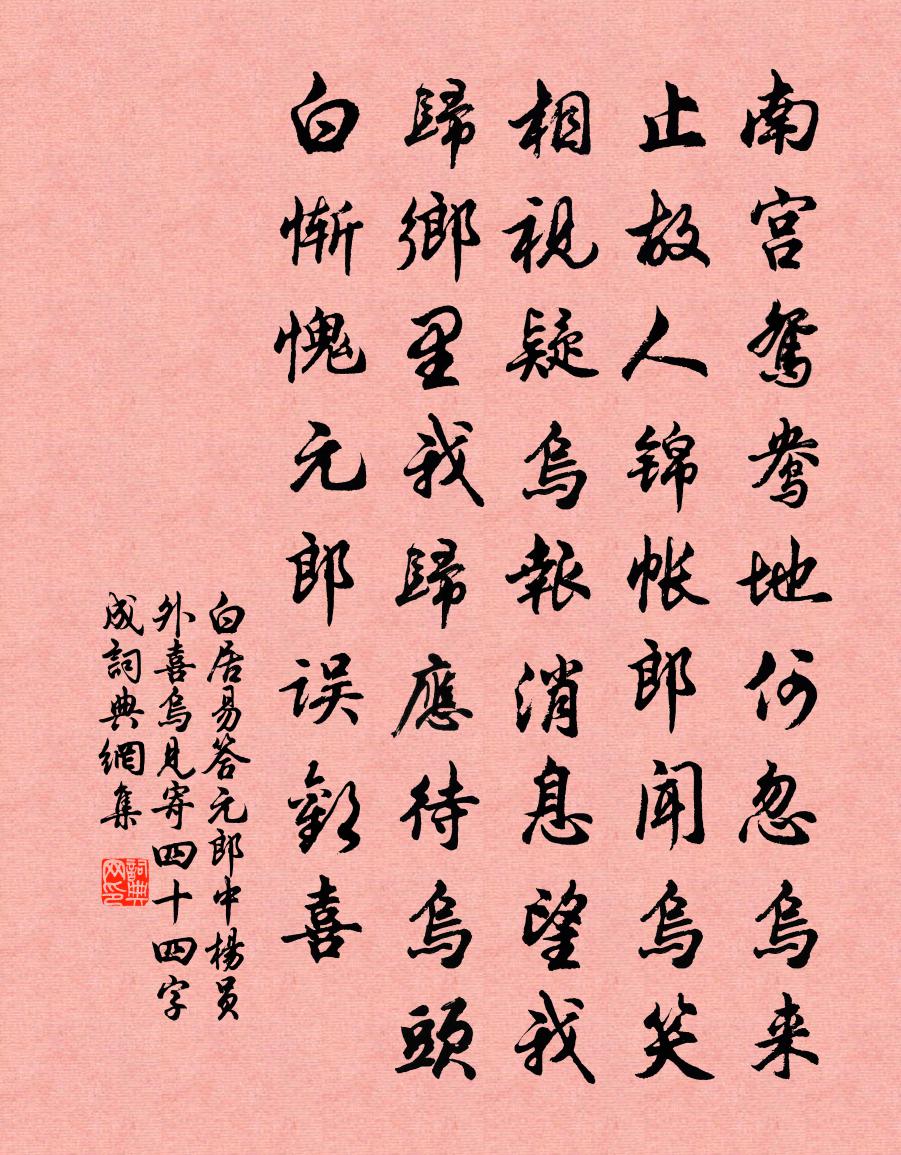 南宫鴛鴦地何忽烏来
止故人锦帐郎聞烏笑
相視疑烏報消息望我
歸鄉里我歸應待烏頭
白慚愧元郎误歡喜
白居易答元郎中楊员
外喜烏見寄四十四字
成詞典網集
詞典网印